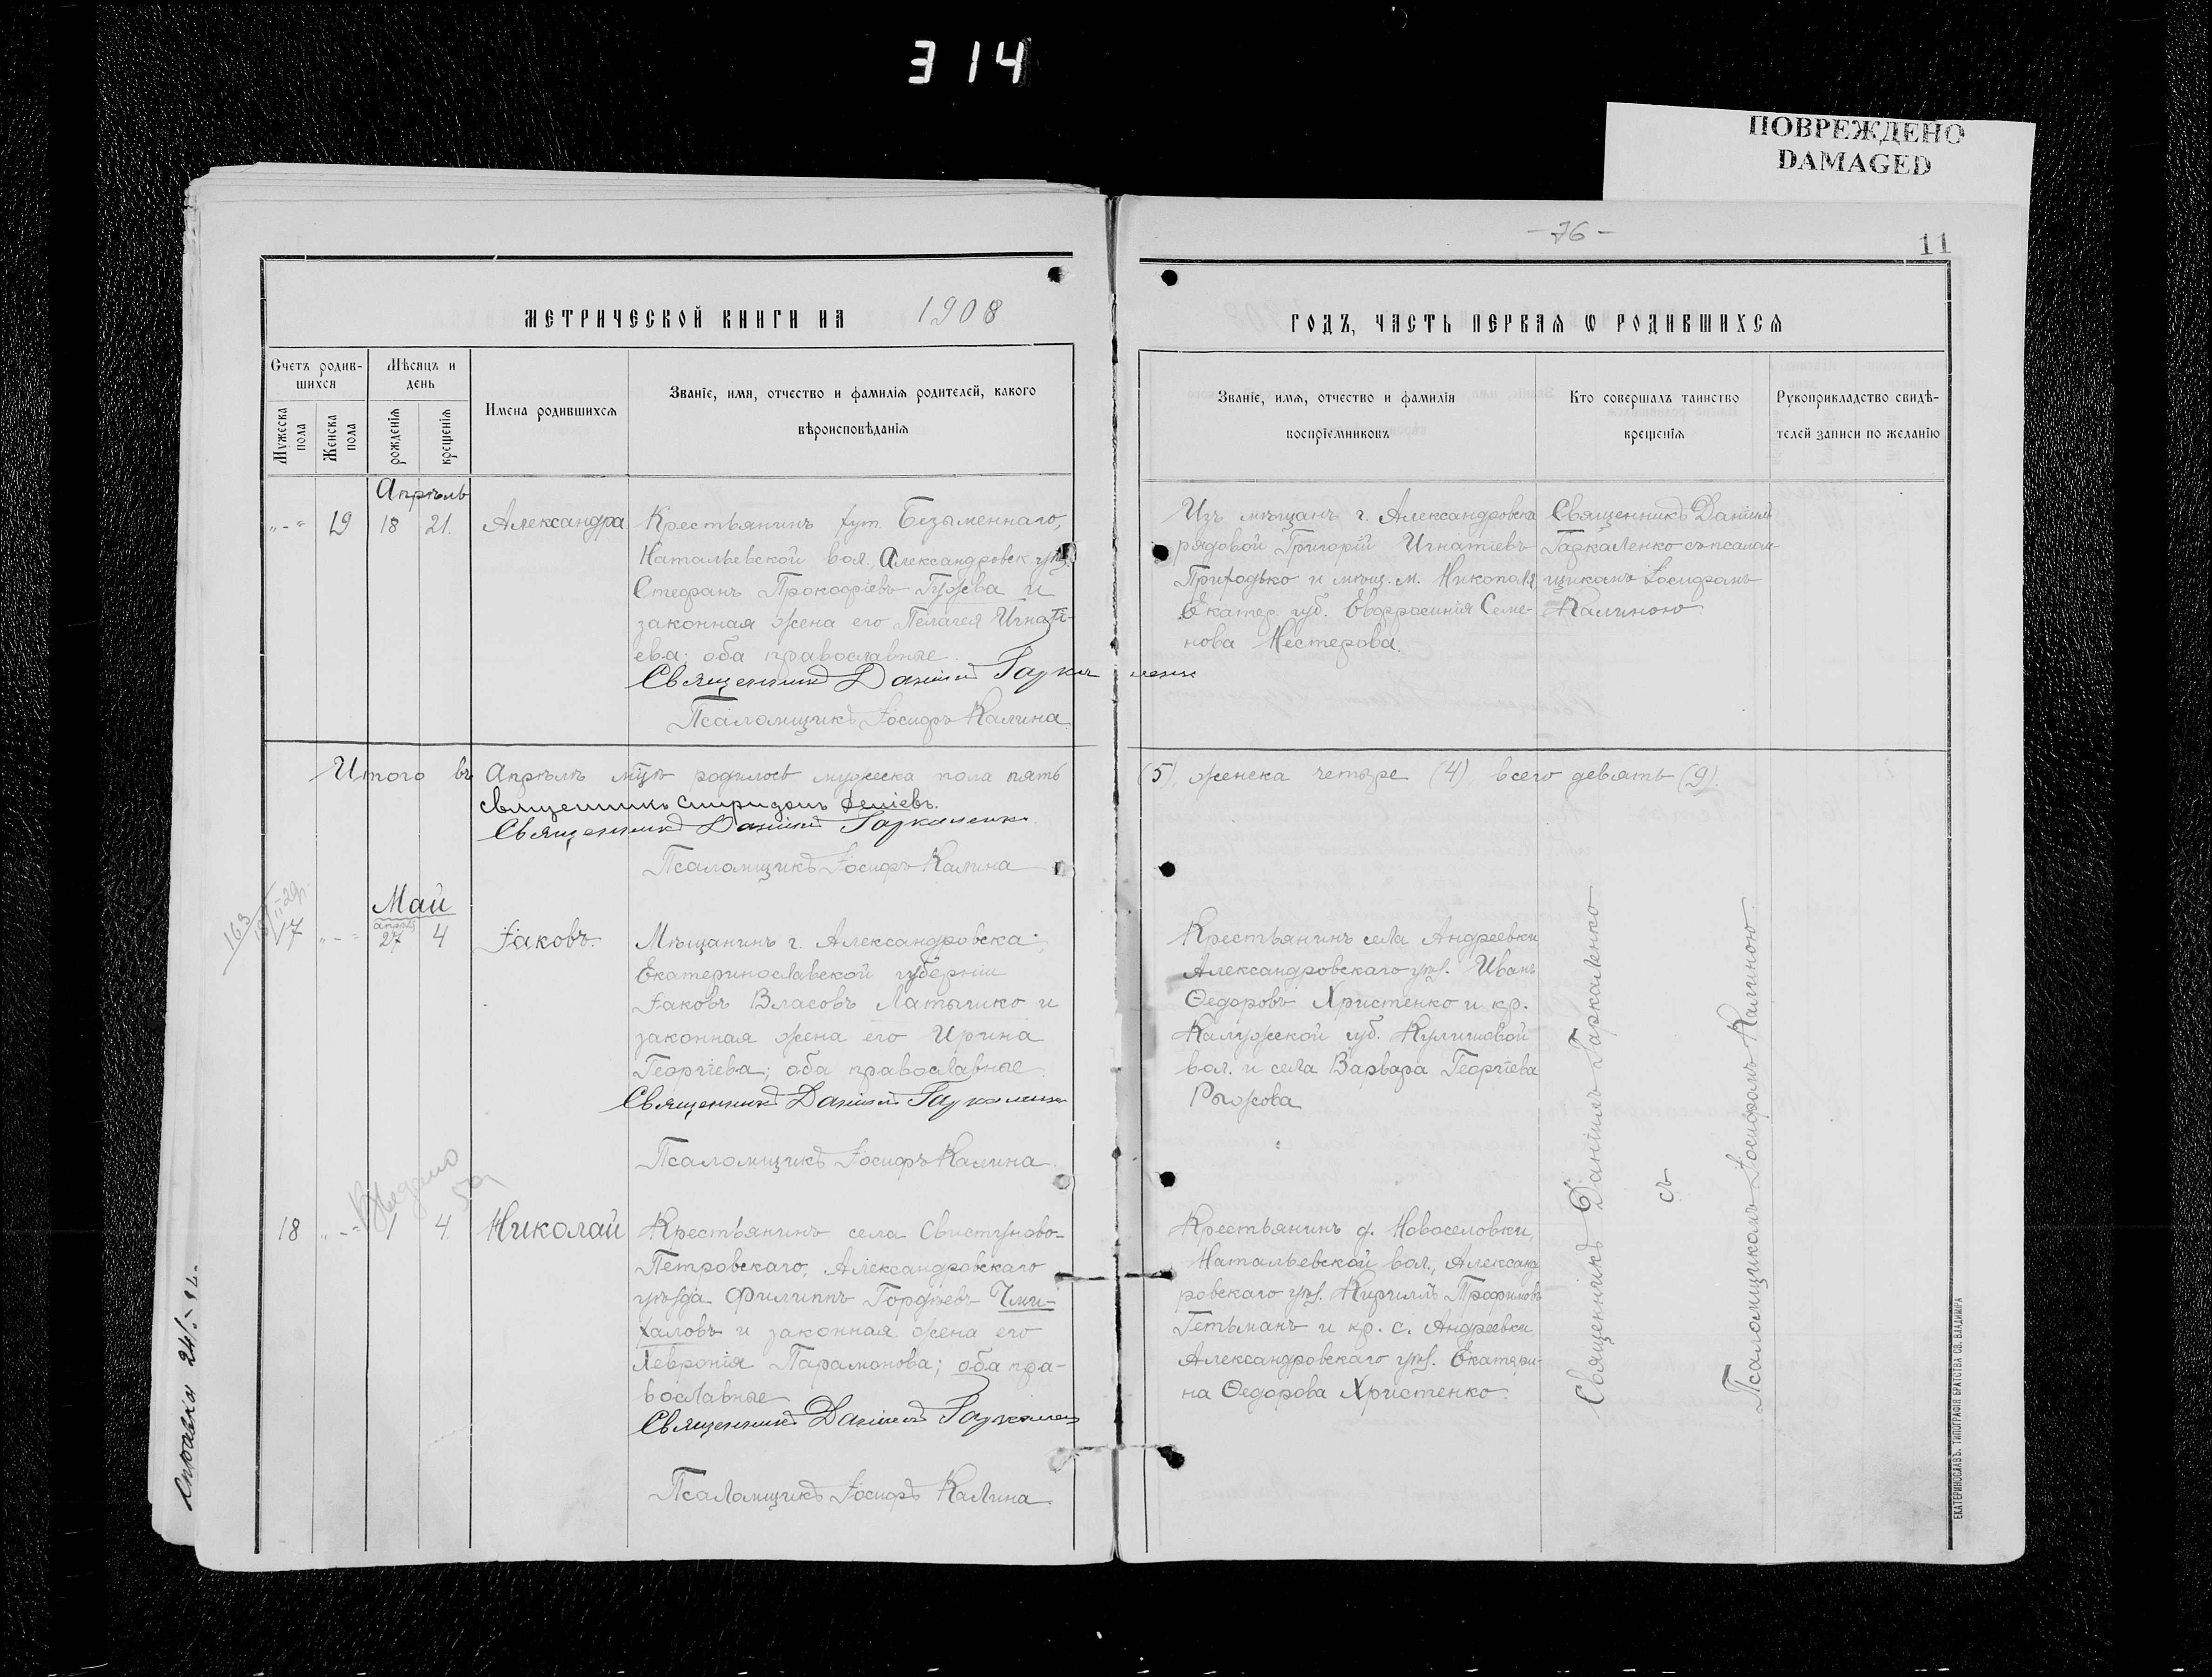 314
ПОВРЕЖДЕНО
DAMAGED
- 76 -
11
МЕТРИЧЕСКОЙ КНИГИ НА 1908
Счетъ родив-
шихся
Мужеска пола
Женска пола
Мѣсяцъ и
день
рожденія
крещенія
Имена родившихся
Званіе, имя, отчество и фамилія родителей, какого
вѣроисповѣданія
Апрѣль
„-“ 19 18 21. Александра
Крестьянинъ хут. Безыменнаго,
Натальевской вол. Александровск. уѣз.
Стефанъ Прокофіевъ Гужва и
законная жена его Пелагея Игнаті-
ева; оба православные.
Священникъ Даніилъ Гаркаленко
Псаломщикъ Іосифъ Калина
Итого въ Апрѣлѣ мцѣ родилось мужеска пола пять
священникъ Спиридонъ
Священникъ Даніилъ Гаркаленко
Псаломщикъ Іосифъ Калина
163
Май
апрѣл
17 „-“ 27 4 Іаковъ.
Мѣщанинъ г. Александровска,
Екатеринославской губерніи
Іаковъ Власовъ Латышко и
законная жена его Ирина
Георгіева; оба православные.
Священникъ Даніилъ Гаркаленко
Псаломщикъ Іосифъ Калина.
Выдано
18 „-“ 1 4. Николай
Крестьянинъ села Свистуново-
Петровскаго, Александровскаго
уѣзда Филиппъ Гордѣевъ Чми-
халовъ и законная жена его
Хевронія Парамонова; оба пра-
вославные
Священникъ Даніилъ Гаркаленко
Псаломщикъ Іосифъ Калина.
ГОДЪ, ЧАСТЬ ПЕРВАЯ Ѡ РОДИВШИХСЯ
Званіе, имя, отчество и фамилія
воспріемниковъ
Кто совершалъ таинство
крещенія
Рукоприкладство свидѣ-
телей записи по желанію
Изъ мѣщанъ г. Александровска
рядовой Григорій Игнатіевъ
Приходько и мѣщ. м. Никополя
Екатер. губ. Евфросинія Семе-
нова Нестерова.
Священникъ Даніилъ
Гаркаленко съ псалом-
щикомъ Іосифомъ
Калиною
(5), женска четыре (4), всего девять (9).
Крестьянинъ села Андреевки
Александровскаго уѣз. Иванъ
Ѳедоровъ Христенко и кр.
Калужской губ. Кулишовой
вол. и села Варвара Георгіева
Рыжова
Крестьянинъ д. Новоселовки,
Натальевской вол., Александ
ровскаго уѣз. Кириллъ Трофимовъ
Гетьманъ и кр. с. Андреевки
Александровскаго уѣз. Екатери-
на Ѳедорова Христенко.
Священникъ Даніилъ Гаркаленко
съ
Псаломщикомъ Іосифомъ Калиною.
ЕКАТЕРИНОСЛАВЪ. ТИПОГРАФІЯ БРАТСТВА СВ. ВЛАДИМІРА